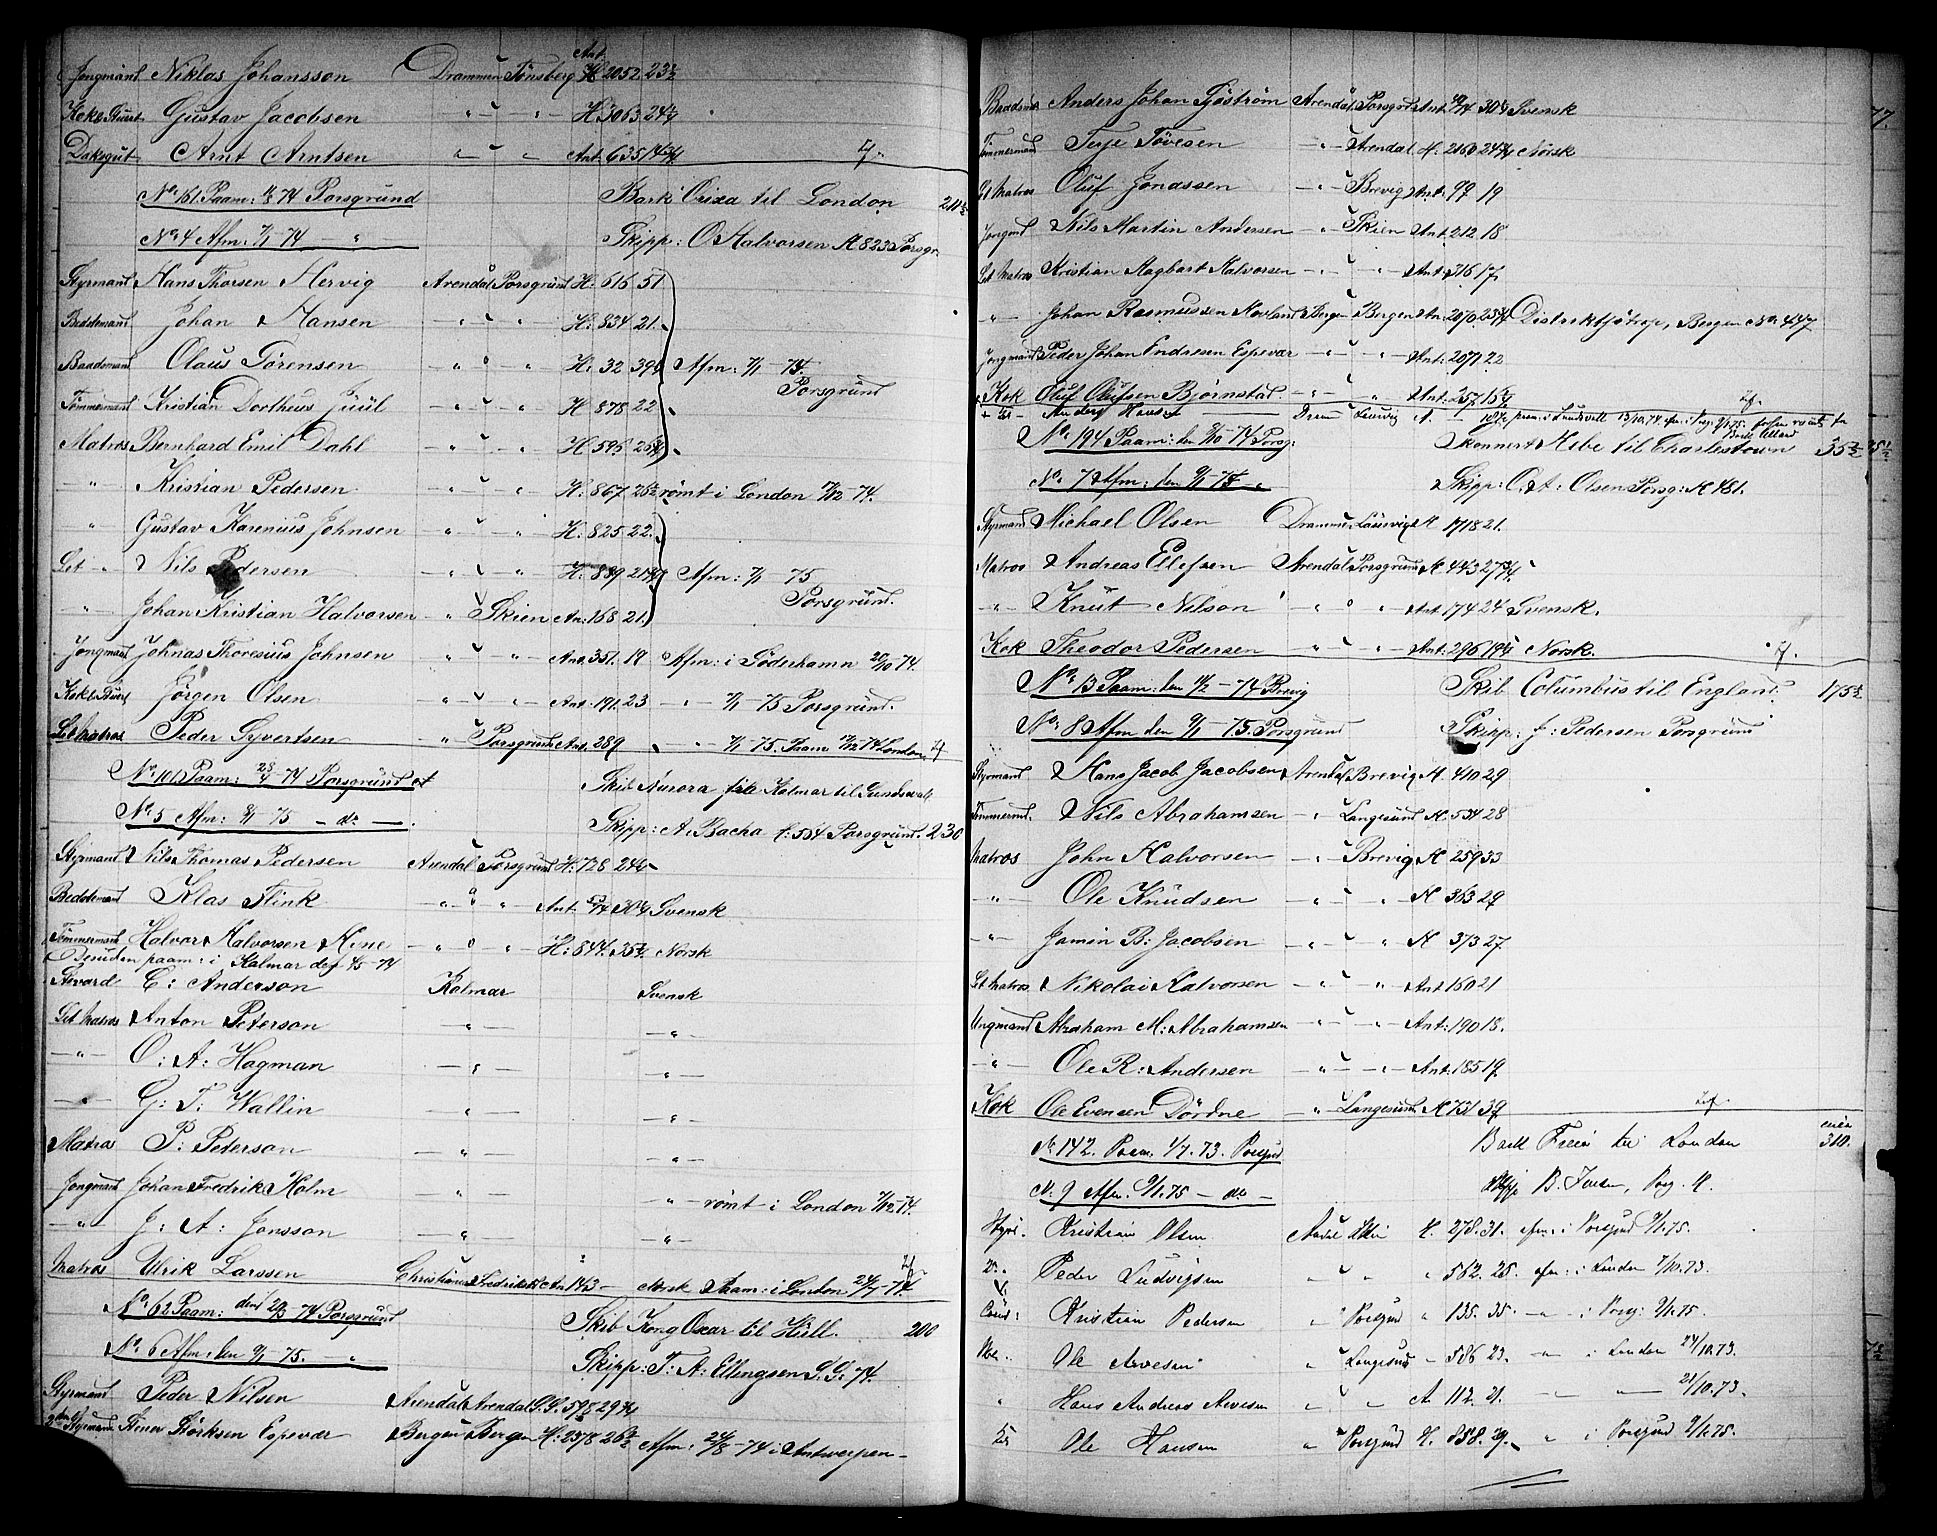 Jongmand Niklas Johansson Drammen Tönsberg Ant. H 2052 23½
Kok & Stuert Gustav Jacobsen " " H. 3063 24
Daksgut Arnt Arntsen " " Ant. 635
No 161. Paam: 74 Porsgrund Bark Orixa til London
No 4 Afm: 7/1 - 74 " Skipp: O Halvorsen H 823 Porsgr.
Styrmand Hans Thorsen Hervig Arendal Porsgrund H: 616 51
Bedstemand Johan Hansen " " H: 834 21.
Baadsmand Olaus Sørensen " " H: 32 39 Afm: 7/1 - 75.
Porsgrund
Tømmermand Kristian Dortheus Juul " " H 878 22
Matros Bernhard Emil Dahl " " H: 596
" Kristian Pedersen " " H: 867 rømt i London 74.
" Gustav Karenius Johnsen " " H: 825 22.
Let " Nils Pedersen " " H: 889 Afm: 7/1 75
Porsgrund.
" Johan Kristian Halvorsen " Skien An: 168 21.
Jongmand Johnas Thoresius Johnsen " " Ant. 351. 19 Afm: i Söderhamn 20/10 74.
Kok & Stuert Jørgen Olsen " " Ant. 191. 23 " 7/1 - 75 Porsgrund.
Let Matros Peder Syvertsen " Porsgrund Ant. 289 " 7/1 - 75. Paam 74 London
No 101 Paam: 23/4 - 74 Porsgrund
No 5 Afm: 8/1 75 - do - Skib Aurora fra Kalmar til Sundsvall
Skipp: A. Bacha H: 554 Porsgrund. 230
Styrmand Nils Thomas Pedersen Arendal Porsgrund H: 728 24
Bedstemand Klas Flink " " Ant. Svensk
Tømmermand Halvor Halvorsen Hene " " H: 844. 35 Norsk
Desuden paam: i Kalmar den 4/5 - 74
Stevard C: Anderson Kalmar Svensk
Let Matros Anton Peterson " "
" O: A: Hagman " "
" G: T: Wallin " "
Matros P: Peterson " "
Jongmand Johan Fredrik Holm " " rømt i London 74.
" J: A: Jonsson " "
Matros Ulrik Larssen Christiania Fredrikst. An 143 - Norsk Paam: i London 74
No 62 Paam: den 20/3 74 Porsgrund Skib Kong Oscar til Hull. 200
No 6 Afm: den 9/1 75. - " Skipp: T: A: Ellingsen S.S. 74.
Styrmand Peder Nilsen Arendal Arendal S.S. 598 29
2den Styrmand Stener Størksen Espevær Bergen Bergen H: 2378 26½ Afm: 24/8 - 74 i Antwerpen -
77.
Baadsmd Anders Johan Sjöström Arendal Porsgrund Ant. 30 Svensk
Tømmermand Terje Tövesen " Arendal H: 2160 24 Norsk
Let Matros Oluf Jonassen " Brevig Ant: 99 19
Jongmd Nils Martin Andersen " Skien Ant. 212 18
Let Matros Kristian Hagbart Halvorsen " " Ant. 316 17
" Johan Rasmussen Hovland Bergen Bergen Ant. 2070 Distriktsstrop, Bergen No 447
Jongmand Peder Johan Endresen Espevær " " Ant: 2071 22
Kok Oluf Olufsen Bjørnstad " " Ant. 257 15
Anders Hansen Dram Laurvig A. - 187. paam: i Sundsvall 13/10.74. afm: i Porsg. 9/1 75.
No 194 Paam: den 74 Porsg: Skonnert Hebe til Charlestown 35½
No 7 Afm: den 9/1 - 75 " Skipp: O. A: Olsen Porsg: H 481.
Styrmand Michael Olsen Drammen Laurvig H 1718 21.
Matros Andreas Ellefsen Arendal Porsgrund H 443 27
" Knut Nilson " " Ant. 174 24 Svensk.
Kok Theodor Pedersen " " Ant: 296 19 Norsk.
No 13 Paam: den 11/2 - 74 Brevig Skib Columbus til England. 175½
No 8 Afm den 9/1 - 75. Porsgrund Skipp: J: Pedersen Porsgrund
Styrmand Hans Jacob Jacobsen Arendal Brevig H. 410 29
Tømmermd. Nils Abrahamsen " Langesund H. 534 28
Matros John Halvorsen " Brevig H 259 33
" Ole Knudsen " " H 363 29
" Jamin B: Jacobsen " " H 373 27.
Let Matros Nikolai Halvorsen " " Ant 160 21
Ungmand Abraham M: Abrahamsen " " Ant: 190 18.
" Ole R: Andersen " " Ant: 185 19
Kok Ole Evensen Dördne " Langesund H 731 39
No 142. Paam. 1/7. 73. Porsgrund Bark Freia til London 310.
No 9 Afm. 9/1. 75 - do - Skipp B. Iversen, Porsg. H.
Styrm. Kristian Olsen Arendal Skien H. 278. 31. afm: i Porsgrund 9/1. 75.
Peder Ludvigsen " " " 562. 25. afm: i London 7/10. 73.
Kristian Pedersen " Porsgrund " 135. 35. " i Porsg: 9/1. 75.
Ole Arvesen " Langesund " 586 23. " i London 24/10. 73.
" Hans Andreas Arvesen " " A 112. 21. " " 21/10. 73.
Ole Hansen " Porsgrund H. 858. 29. " i Porsgrund 9/1. 75.